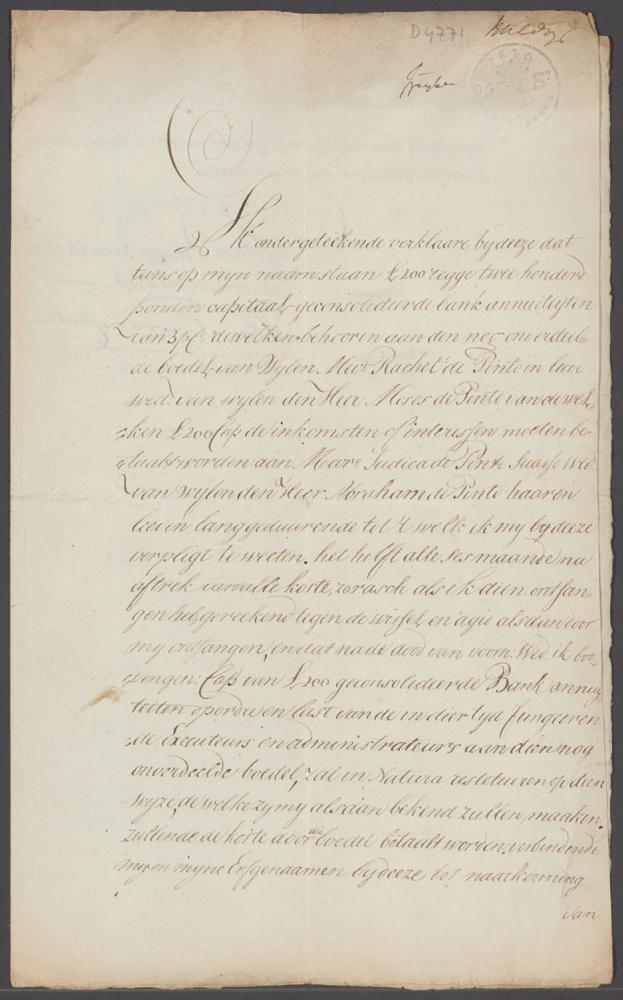 D4771
Ik ondergeteekende verklaare by deeze dat
tans op myn naam staan £200 zegge twee honderd
ponden capitaal geconsolideerde bank annuiteyten
van 3 pCt dewelken behooren aan den nog onverdeel-
de boedel van Wylen Mevr Rachel de Pinto in leeven
wed. van wylen den Heer Moses de Pinto van dewel-
ken £200 Cap de inkomsten of interessen moeten be-
taalt worden aan Mevre Judica de Pinto Suasso Wed.
van Wylen den Heer Abraham de Pinto haaren
leeven lang geduurende tot 't welk ik my by deeze
verpligt te weeten. het helft alle ses maande na
aftrek van alle koste, zo rasch als ik dien ontfan-
gen heb, gereekend tegen de wissel en agio als dan door
my ontfangen, en dat na de dood van voorn: Wed. ik boo-
vengen: Cap van £200 geconsolideerde Bank annui-
teiten op ordre en last van de in dier tyd fungeeren-
de Executeurs en administrateurs aan dien nog
onverdeelde boedel, zal in Natura restitueren op dien
wyze, de welke zy my alsdan bekend zullen maaken.
zullende de koste door die boedel betaalt worden. verbindende
my en myne Erfgenaamen by deeze tot naarkooming
van